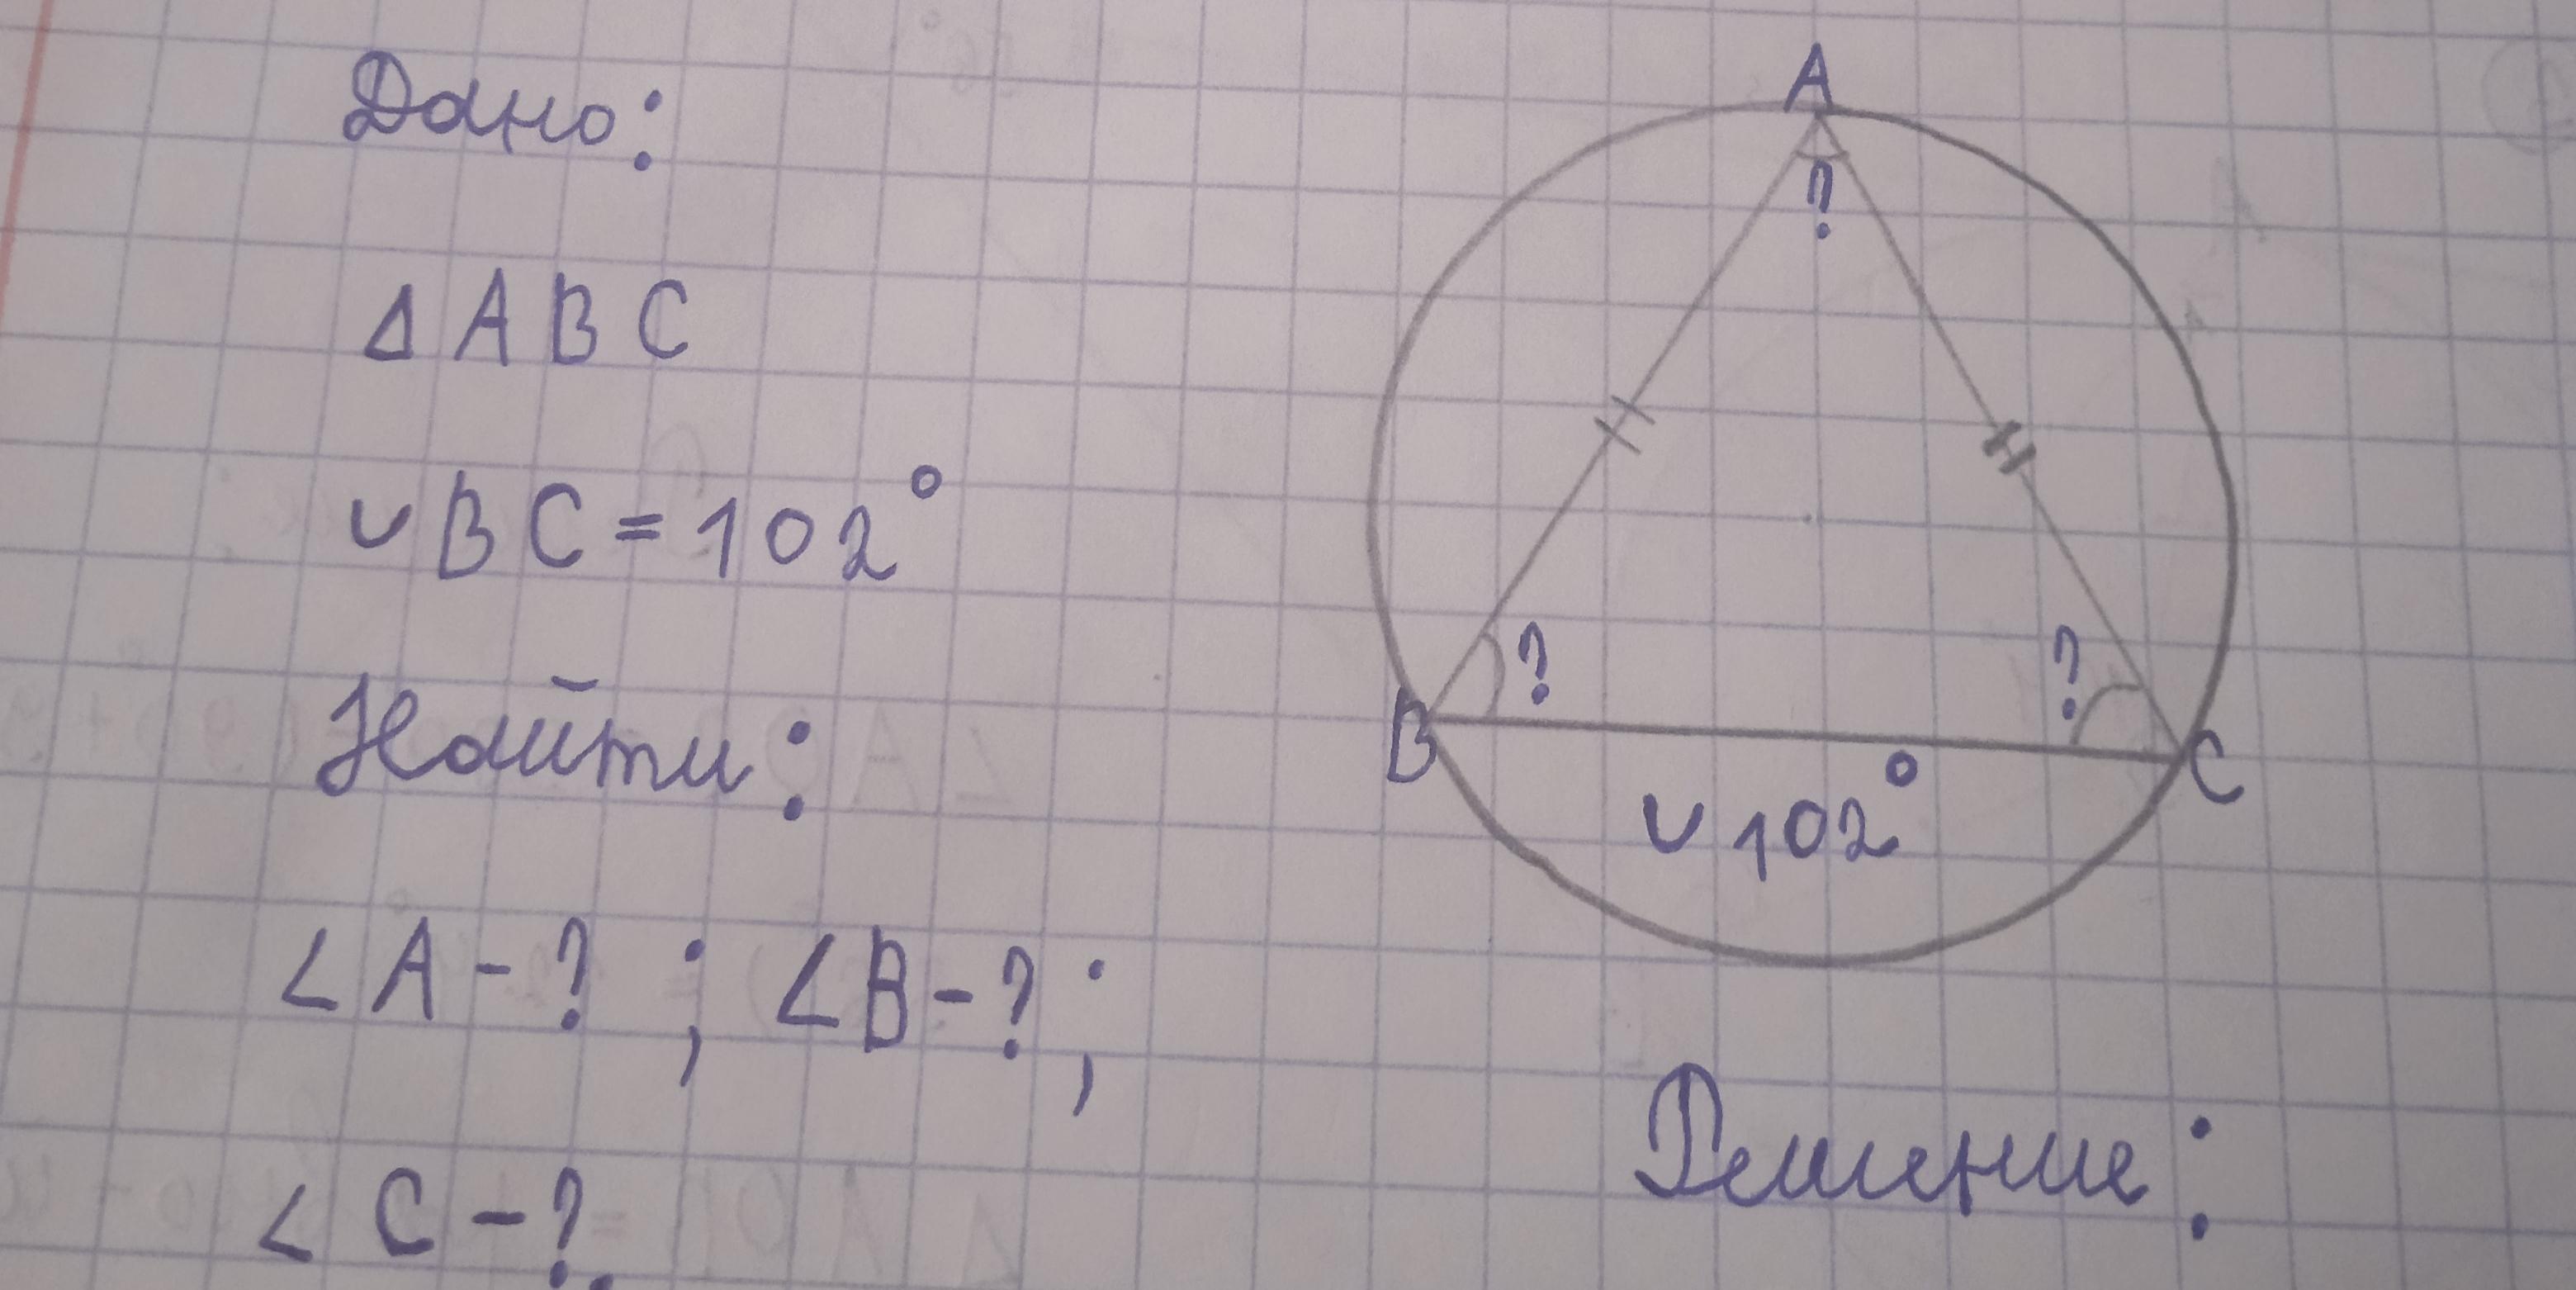 Дано:
Δ A B C
∪ B C = 102°
Найти:
∠ A - ? ; ∠ B - ? ;
∠ C - ?.
A
?
?
?
B
C
∪ 102°
Решение: